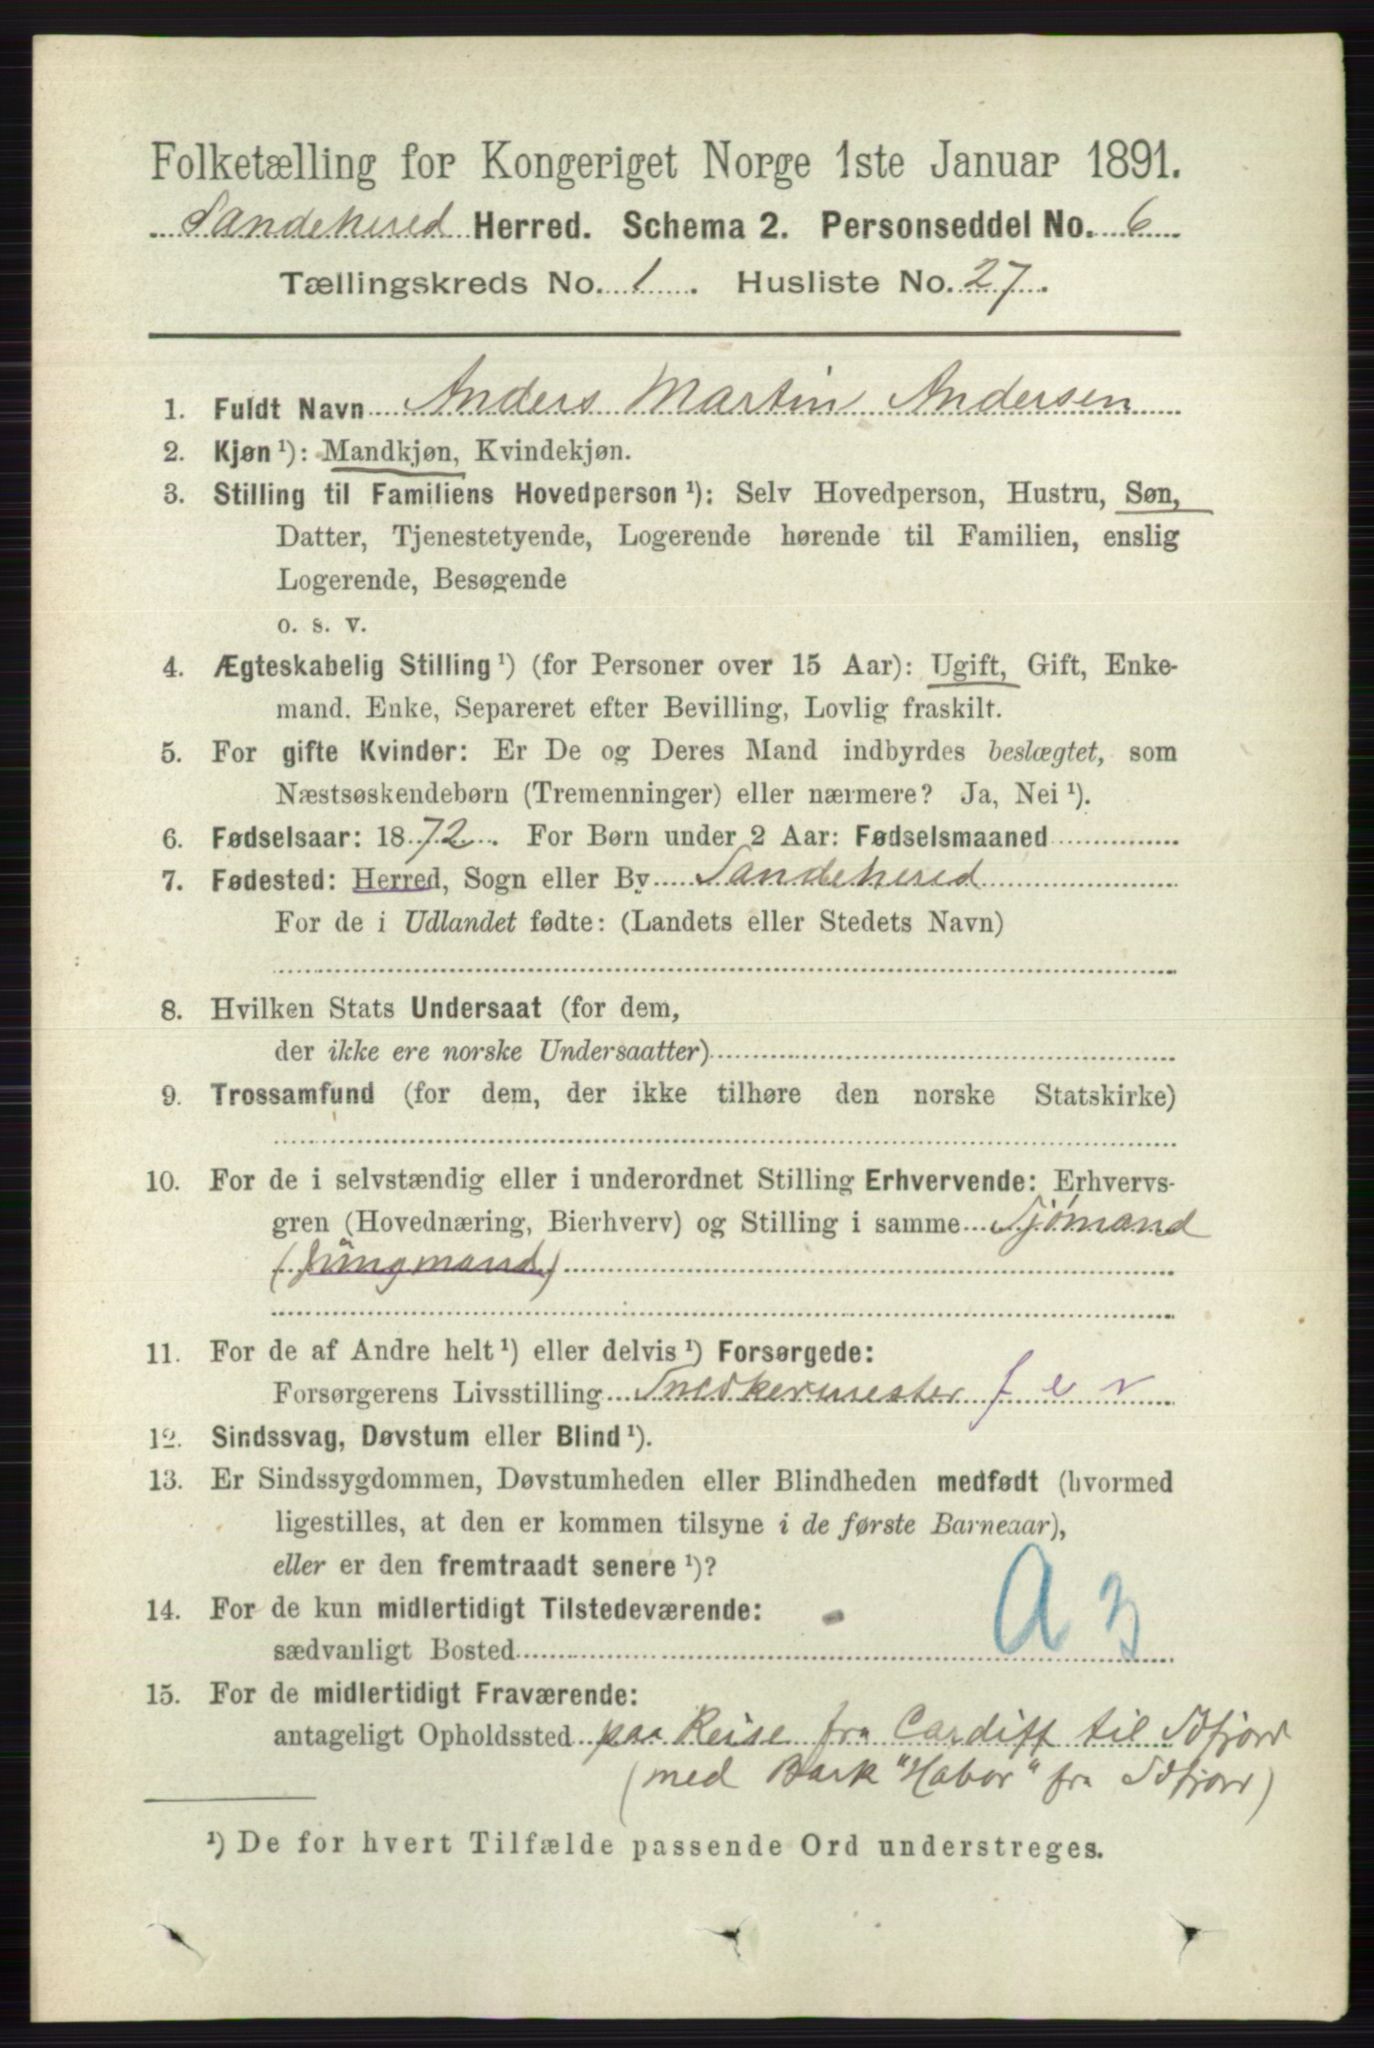 Folketælling for Kongeriget Norge 1ste Januar 1891.
Sandeherred Herred. Schema 2. Personseddel No. 6
Tællingskreds No. 1. Husliste No. 27.
1. Fuldt Navn Anders Martin Andersen
2. Kjøn ¹): Mandkjøn, Kvindekjøn.
3. Stilling til Familiens Hovedperson ¹): Selv Hovedperson, Hustru, Søn,
Datter, Tjenestetyende, Logerende hørende til Familien, enslig
Logerende, Besøgende
o. s. v.
4. Ægteskabelig Stilling ¹) (for Personer over 15 Aar): Ugift, Gift, Enke-
mand, Enke, Separeret efter Bevilling, Lovlig fraskilt.
5. For gifte Kvinder: Er De og Deres Mand indbyrdes beslægtet, som
Næstsøskendebørn (Tremenninger) eller nærmere? Ja, Nei ¹).
6. Fødselsaar: 1872. For Børn under 2 Aar: Fødselsmaaned
7. Fødested: Herred, Sogn eller By Sandeherred
For de i Udlandet fødte: (Landets eller Stedets Navn)
8. Hvilken Stats Undersaat (for dem,
der ikke ere norske Undersaatter)
9. Trossamfund (for dem, der ikke tilhøre den norske Statskirke)
10. For de i selvstændig eller i underordnet Stilling Erhvervende: Erhvervs-
gren (Hovednæring, Bierhverv) og Stilling i samme Sjømand
(Jungmand)
11. For de af Andre helt ¹) eller delvis ¹) Forsørgede:
Forsørgerens Livsstilling Snedkermester f e r
12. Sindssvag, Døvstum eller Blind ¹).
13. Er Sindssygdommen, Døvstumheden eller Blindheden medfødt (hvormed
ligestilles, at den er kommen tilsyne i de første Barneaar),
eller er den fremtraadt senere ¹)?
14. For de kun midlertidigt Tilstedeværende:
sædvanligt Bosted A 3
15. For de midlertidigt Fraværende:
antageligt Opholdssted paa Reise fra Cardiff til
(med Bark "Habor" fra
¹) De for hvert Tilfælde passende Ord understreges.